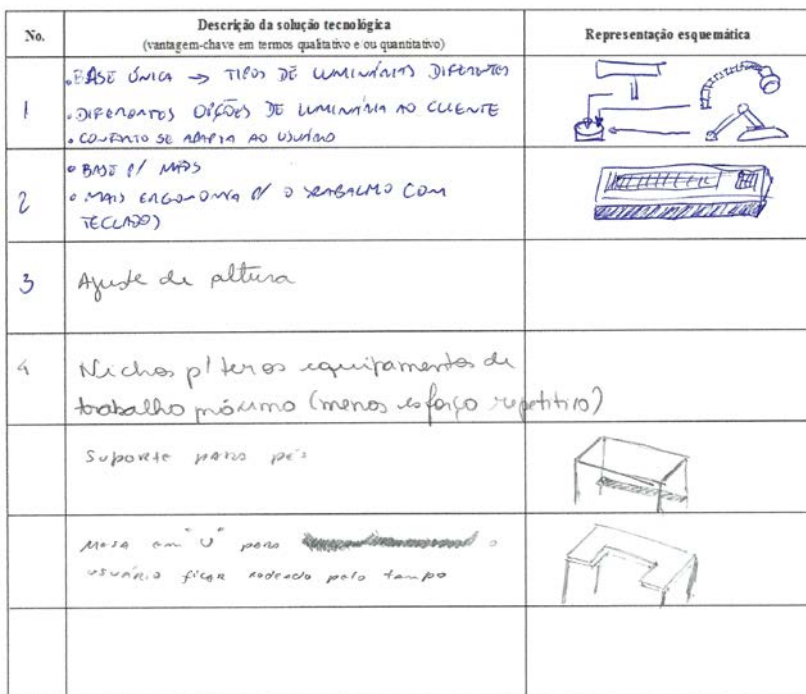 No.
Descrição da solução tecnológica
(vantagem-chave em termos qualitativo e/ou quantitativo)
Representação esquemática
1
• BASE ÚNICA → TIPOS DE LUMINÁRIAS DIFERENTES
• DIFERENTES OPÇÕES DE LUMINÁRIA AO CLIENTE
• CONFORTO SE ADAPTA AO USUÁRIO
2
• BASE P/ MÃOS
• MAIS ERGONOMIA P/ O TRABALHO COM
TECLADO)
3
Ajuste de altura
4
Nichos p/ ter os equipamentos de
trabalho próximo (menos esforço repetitivo)
Suporte para pés
Mesa em "U" para o
usuário ficar rodeado pelo tampo